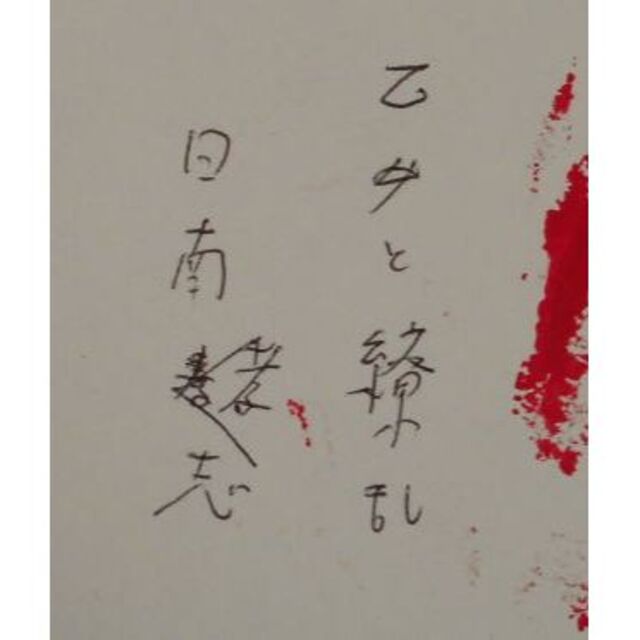 乙女と繚乱
日南志